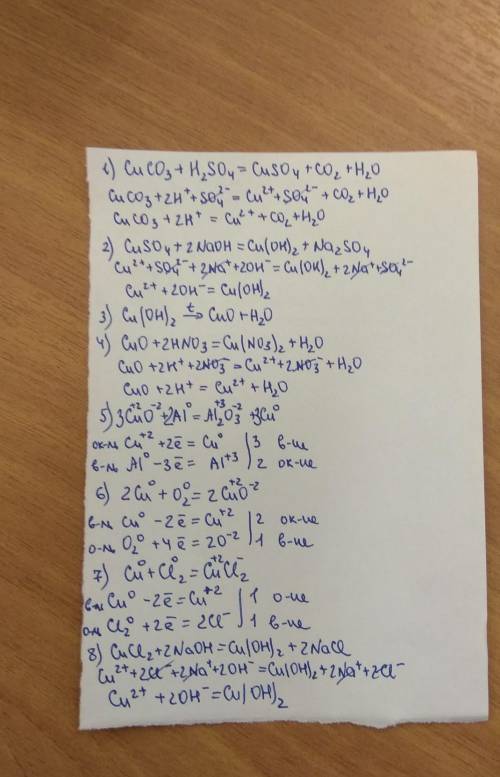 1) CuCO₃ + H₂SO₄ = CuSO₄ + CO₂ + H₂O
CuCO₃ + 2H⁺ + SO₄²⁻ = Cu²⁺ + SO₄²⁻ + CO₂ + H₂O
CuCO₃ + 2H⁺ = Cu²⁺ + CO₂ + H₂O
2) CuSO₄ + 2NaOH = Cu(OH)₂ + Na₂SO₄
Cu²⁺ + SO₄²⁻ + 2Na⁺ + 2OH⁻ = Cu(OH)₂ + 2Na⁺ + SO₄²⁻
Cu²⁺ + 2OH⁻ = Cu(OH)₂
3) Cu(OH)₂ →ᵗ CuO + H₂O
4) CuO + 2HNO₃ = Cu(NO₃)₂ + H₂O
CuO + 2H⁺ + 2NO₃⁻ = Cu²⁺ + 2NO₃⁻ + H₂O
CuO + 2H⁺ = Cu²⁺ + H₂O
5) 3Cu⁺²O⁻² + 2Al⁰ = Al₂⁺³O₃⁻² + 3Cu⁰
ок-ль Cu⁺² + 2ē = Cu⁰ | 3 в-ие
в-ль Al⁰ - 3ē = Al⁺³ | 2 ок-ие
6) 2Cu⁰ + O₂⁰ = 2Cu⁺²O⁻²
в-ль Cu⁰ - 2ē = Cu⁺² | 2 ок-ие
о-ль O₂⁰ + 4ē = 2O⁻² | 1 в-ие
7) Cu⁰ + Cl₂⁰ = Cu⁺²Cl₂⁻
в-ль Cu⁰ - 2ē = Cu⁺² | 1 о-ие
о-ль Cl₂⁰ + 2ē = 2Cl⁻ | 1 в-ие
8) CuCl₂ + 2NaOH = Cu(OH)₂ + 2NaCl
Cu²⁺ + 2Cl⁻ + 2Na⁺ + 2OH⁻ = Cu(OH)₂ + 2Na⁺ + 2Cl⁻
Cu²⁺ + 2OH⁻ = Cu(OH)₂